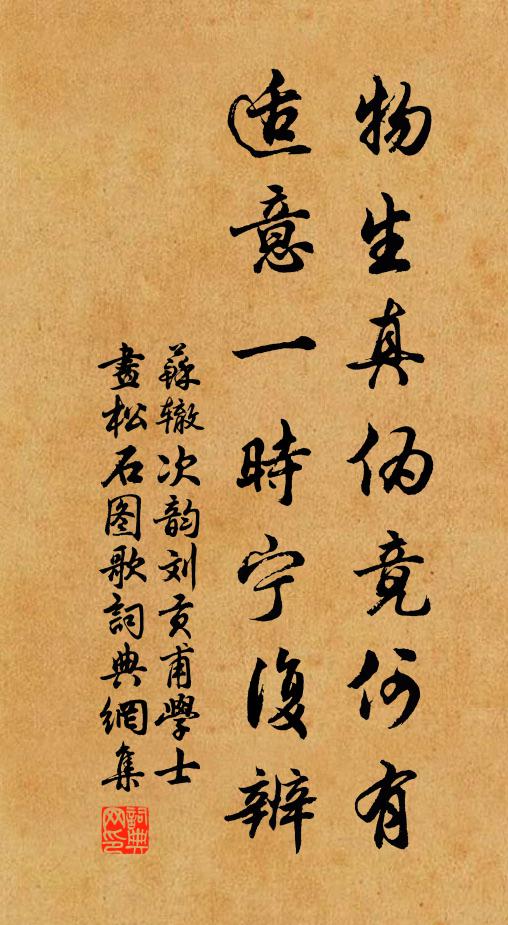 物生真伪竟何有
适意一時宁復辨
蘇辙次韵刘贡甫學士
畫松石图歌詞典網集
詞典网印